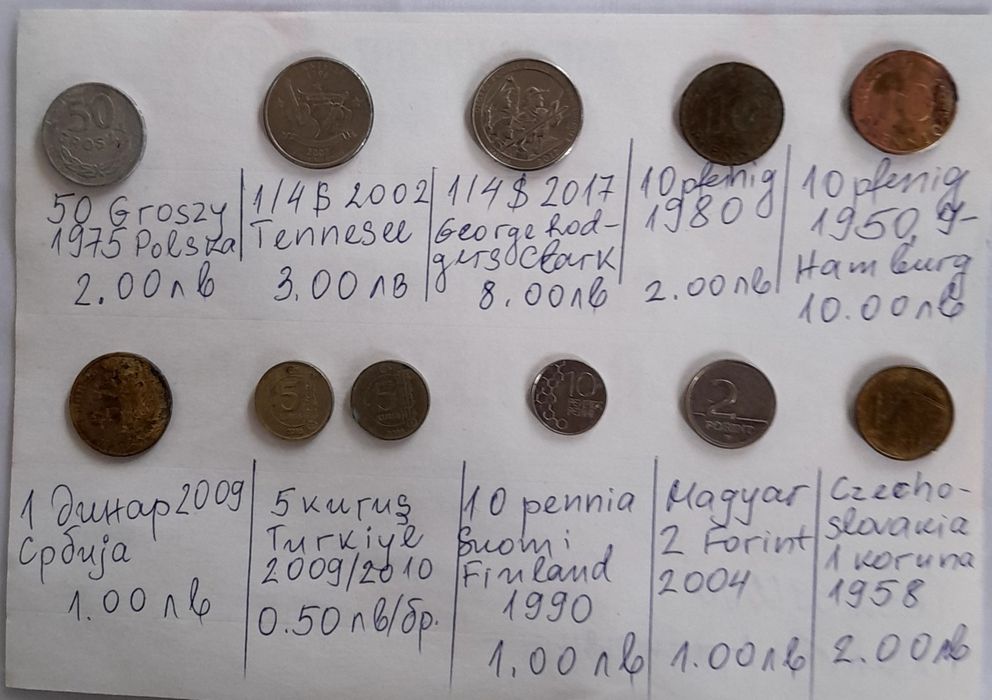 50
GROSZY
50 Groszy
1975 Polsza
2.00лв
1/4 $ 2002
Tennesee
3.00лв
1/4 $ 2017
George Rod-
gers Clark
8.00лв
10
10 pfenig
1980
2.00лв
10 pfenig
1950, J-
Hamburg
10.00лв
1 Динар 2009
Србија
1.00 лв
5
5
5 kuruş
Turkiye
2009/2010
0.50 лв/бр.
10
10 pennia
Suomi
Finland
1990
1.00 лв
2
FORINT
Magyar
2 Forint
2004
1.00лв
Czecho-
slovakia
1 koruna
1958
2.00лв